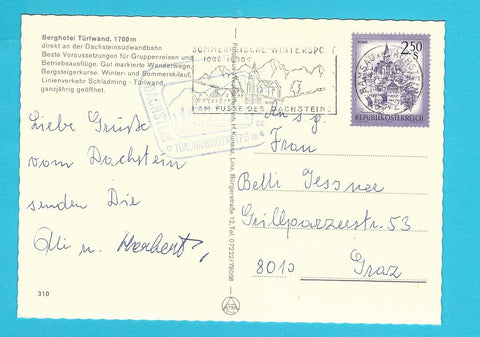 Berghotel Türlwand, 1700m
direkt an der Dachsteinsüdwandbahn
Beste Voraussetzungen für Gruppenreisen und
Betriebsausflüge. Gut markierte Wanderwege,
Bergsteigerkurse. Winter- und Sommerskilauf,
Linienverkehr Schladming - Türlwand,
ganzjährig geöffnet.
Liebe Grüße
vom Dachstein
senden Die
Olli u. Herbert
310
H. Kunszt, Linz, Bürgerstraße 12, Tel. 07222/79008
SOMMERFRISCHE-WINTERSPORT
AM FUSSE DES DACHSTEINS
2.50
S
REPUBLIK ÖSTERREICH
RAMSAU
An s. g.
Frau
Betti Jessner
Grillparzerstr. 53
8010 Graz